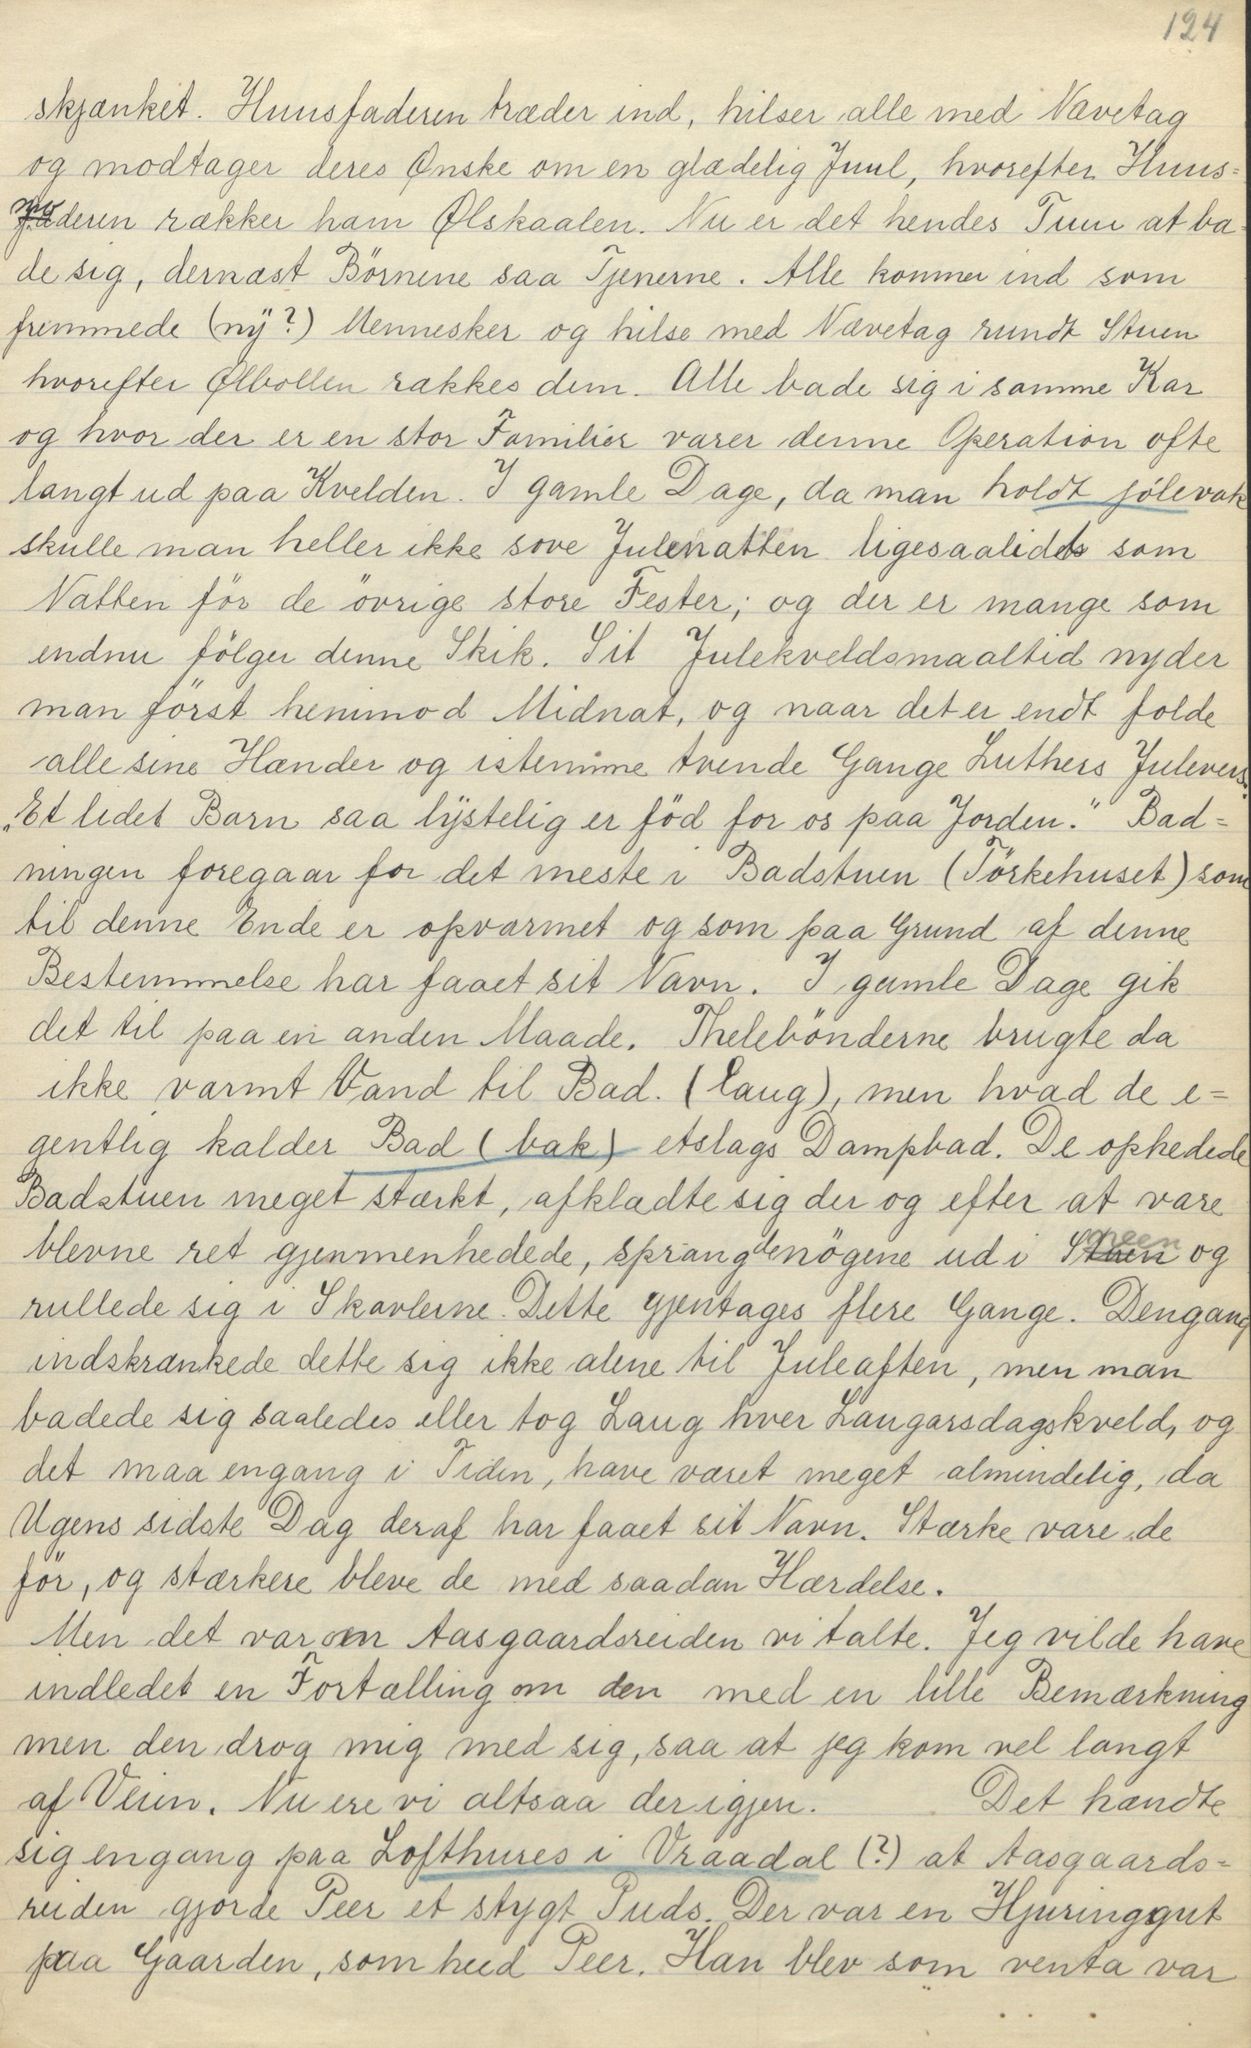 124
skjænket. Huusfaderen træder ind, hilser alle med Nævetag
og modtager deres Ønske om en glædelig Juul, hvorefter Huus=
moderen rækker ham Ølskaalen. Nu er det hendes Tuur at ba-
de sig, dernæst Börnene saa Tjenerne. Alle kommer ind som
fremmede (ny?) Mennesker og hilse med Nævetag rundt Stuen
hvorefter Ølbollen rækkes dem. Alle bade sig i samme Kar
og hvor der er en stor Familier varer denne Operation ofte
langt ud paa Kvelden. I gamle Dage, da man holdt jölevak
skulle man heller ikke sove Julenatten ligesaalidt som
Natten för de övrige store Fester; og der er mange som
endnu fölger denne Skik. Sit Julekveldsmaaltid nyder
man först henimod Midnat, og naar det er endt folde
alle sine Hænder og istemme trende Gange Luthers Julevers:
"Et lidet Barn saa lystelig er född for os paa Jorden." Bad=
ningen foregaar for det meste i Badstuen (Törkehuset) som
til denne Ende er opvarmet og som paa Grund af denne
Bestemmelse har faaet sit Navn. I gamle Dage gik
det til paa en anden Maade. Thelebönderne brugte da
ikke varmt Vand til Bad. (laug), men hvad de e=
gentlig kalder Bad (bak) etslags Dampbad. De ophedede
Badstuen meget stærkt, afklædte sig der og efter at være
blevne ret gjennemhedede, sprang de nögene ud i Sneen og
rullede sig i Skavlerne. Dette gjentages flere Gange. Dengang
indskrænkede dette sig ikke alene til Juleaften, men man
badede sig saaledes eller tog Laug hver Laugarsdagskveld, og
det maa engang i Tiden, have været meget almindelig, da
Ugens sidste Dag deraf har faaet sit Navn. Stærke vare de
för, og stærkere bleve de med saadan Hærdelse.
Men det var om Aasgaardsreiden vi talte. Jeg vilde have
indledet en Fortælling om den med en lille Bemærkning
men den drog mig med sig, saa at jeg kom vel langt
af Veien. Nu ere vi altsaa der igjen. Det hændte
sig engang paa Lofthures i Vraadal (?) at Aasgaards=
reiden gjorde Peer et stygt Puds. Der var en Hjuringgut
paa Gaarden, som heed Peer. Han blev som venta var